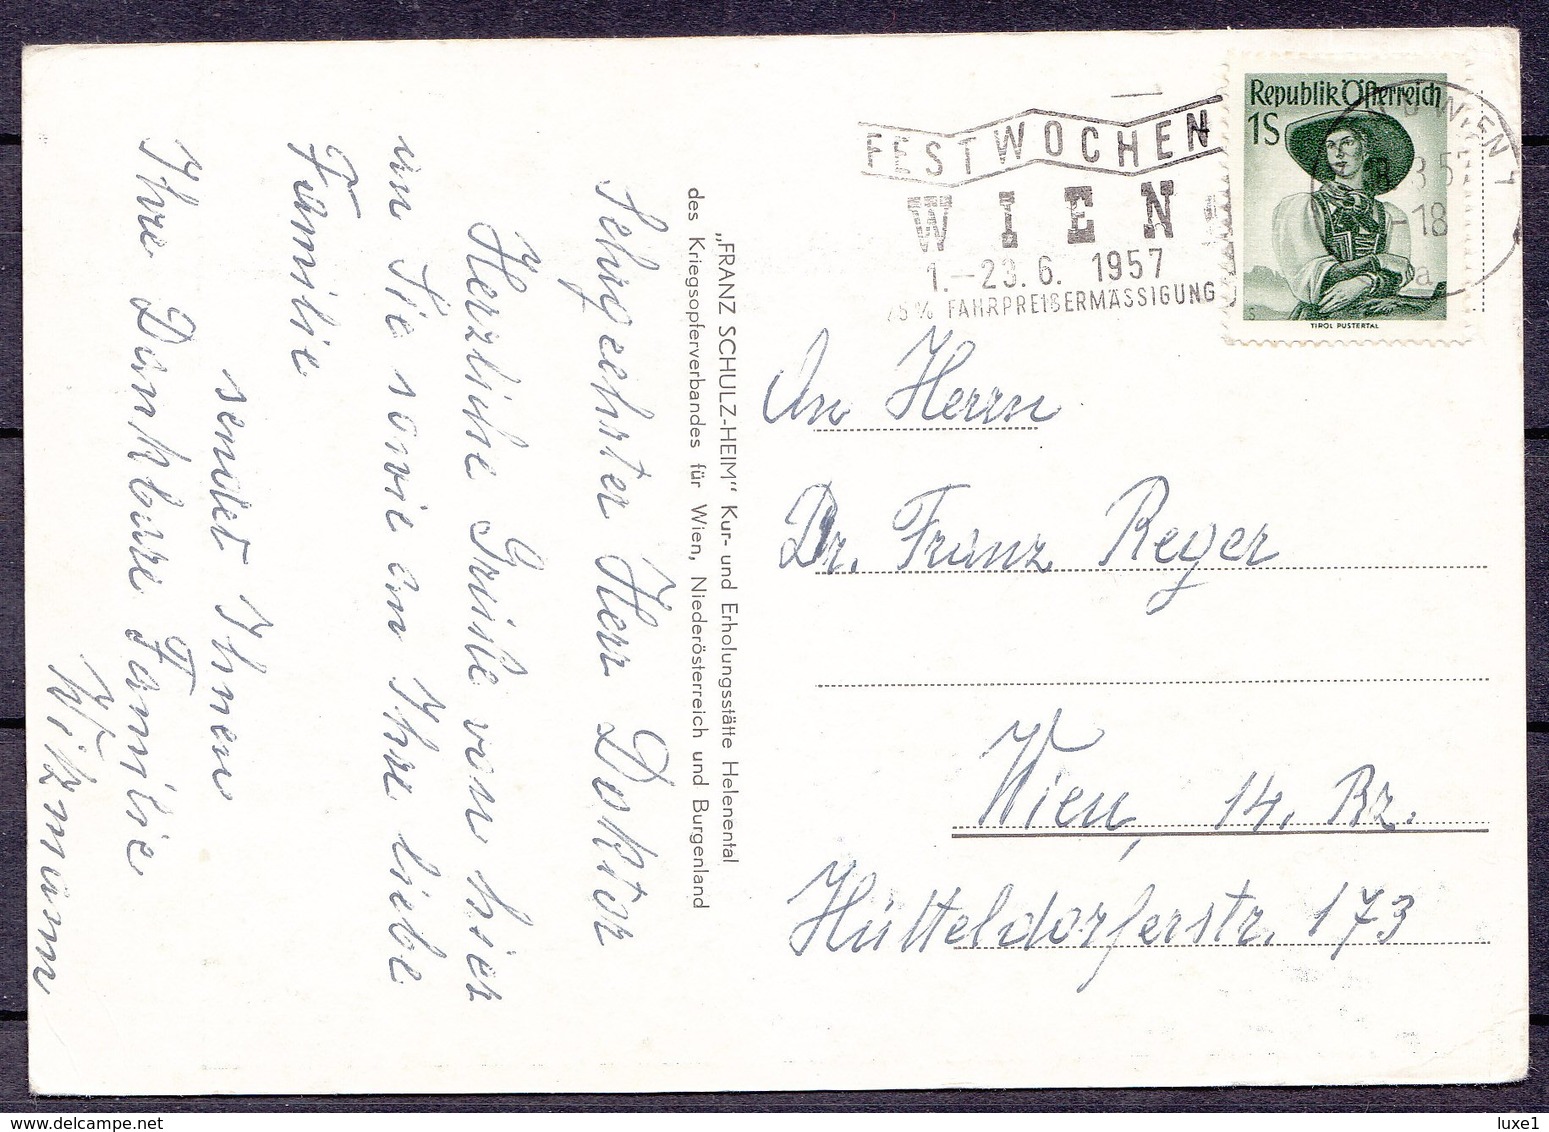 Sehrgeehrter Herr Doktor
Herzliche Grüße von hier
an Sie sowie an Ihre liebe
Familie
sendet Ihnen
Ihre Dankbare Familie
Witzmann
„FRANZ SCHULZ-HEIM" Kur- und Erholungsstätte Helenental
des Kriegsopferverbandes für Wien, Niederösterreich und Burgenland
FESTWOCHEN
WIEN
1.-23.6. 1957
25% FAHRPREIßERMÄSSIGUNG
Republik Österreich
1S
TIROL PUSTERTAL
WIEN 1
3.57
-18
a
An Herrn
Dr. Franz Reyer
Wien, 14, Bz.
Hütteldorferstr. 173
delcampe.net
luxe1